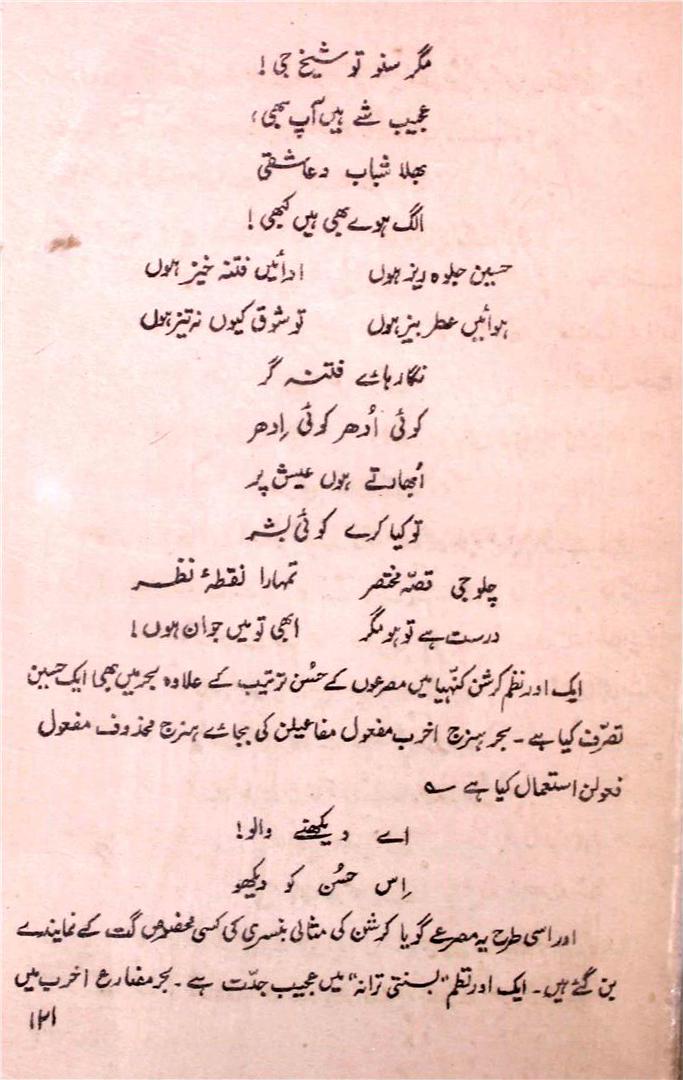 مگر سنو تو شیخ جی!
عجیب شے ہیں آپ بھی؛
بھلا شباب و عاشقی
الگ ہوے بھی ہیں کبھی!
حسین جلوہ ریز ہوں ادائیں فتنہ خیز ہوں
ہوائیں عطر بیز ہوں تو شوق کیوں نہ تیز ہوں
نگار ہائے فتنہ گر
کوئی اُدھر کوئی اِدھر
اُبھارتے ہوں عیش پر
تو کیا کرے کوئی بشر
چلو جی قصّہ مختصر تمہارا نقطۂ نظر
درست ہے تو ہو مگر ابھی تو میں جوان ہوں!
ایک اور نظم کرشن کنہیا میں مصرعوں کے حسُن ترتیب کے علاوہ بحر میں بھی ایک حسین
تصرّف کیا ہے۔ بحر ہزج اخرب مفعول مفاعیلن کی بجائے ہزج محذوف مفعول
فعولن استعمال کیا ہے ؎
اے دیکھنے والو!
اِس حسُن کو دیکھو
اور اسی طرح یہ مصرعے گویا کرشن کی مثالی بنسری کی کسی مخصوص گت کے نمایندے
بن گئے ہیں۔ ایک اور نظم "بسنتی ترانہ" میں عجیب جدّت ہے۔ بحر مضارع اخرب میں
۱۲۱